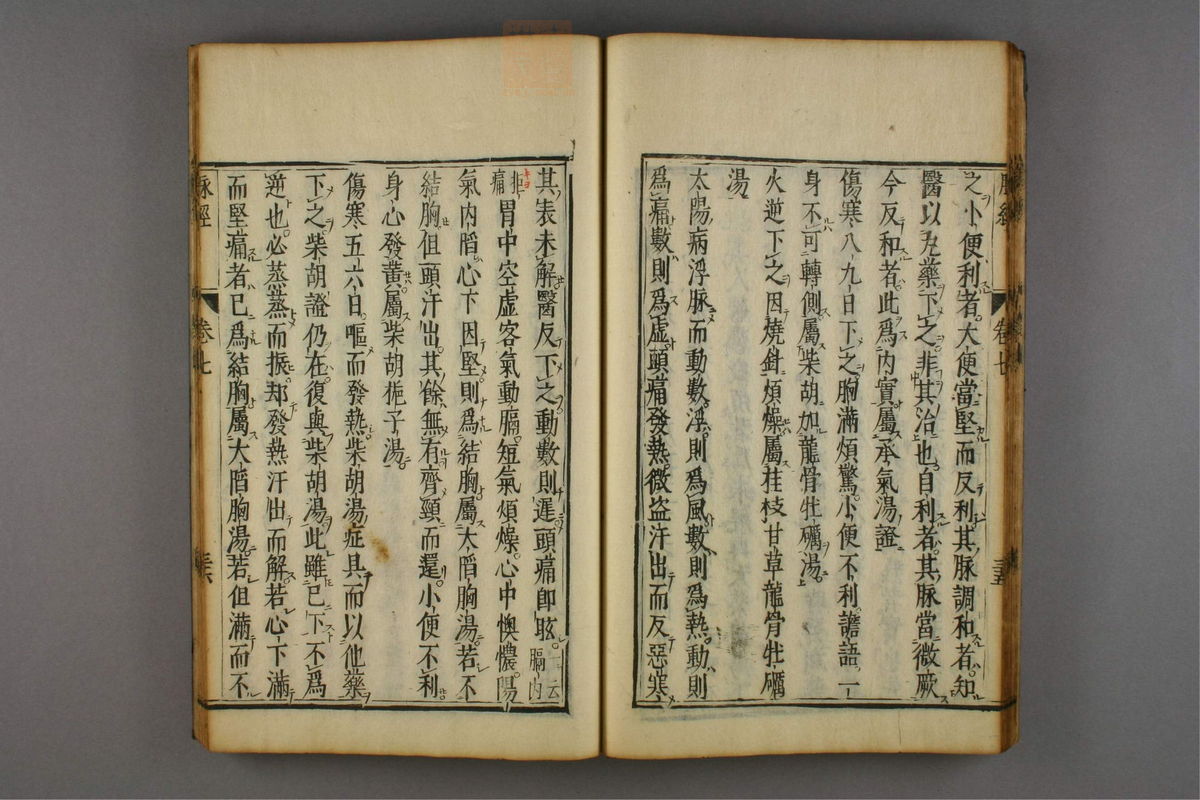 之小便利者大便當堅而反利其脉調和者知
醫以丸藥下之非其治也自利者其脉當微厥
今反和者此爲内實屬承氣湯證
傷寒八九日下之胸滿煩驚小便不利讝語一
身不可轉側屬柴胡加龍骨牡礪湯
火逆下之因燒針煩燥屬桂枝甘草龍骨牡礪
湯
太陽病浮脉而動數浮則爲風數則爲熱動則
爲痛數則爲虛頭痛發熱微盜汗出而反惡寒
卷七
其表未解醫反下之動數則遲頭痛即眩一云膈内拒痛
胃中空虛客氣動膈短氣煩燥心中懊憹陽
氣内陷心下因堅則爲結胸屬大陷胸湯若不
結胸但頭汗出其餘無有齊頸而還小便不利
身必發黄屬柴胡梔子湯
傷寒五六日嘔而發熱柴胡湯症具而以他藥
下之柴胡證仍在復與柴胡湯此雖已下不爲
逆也必蒸蒸而振却發熱汗出而解若心下滿
而堅痛者已爲結胸屬大陷胸湯若但滿而不
脉經 卷七